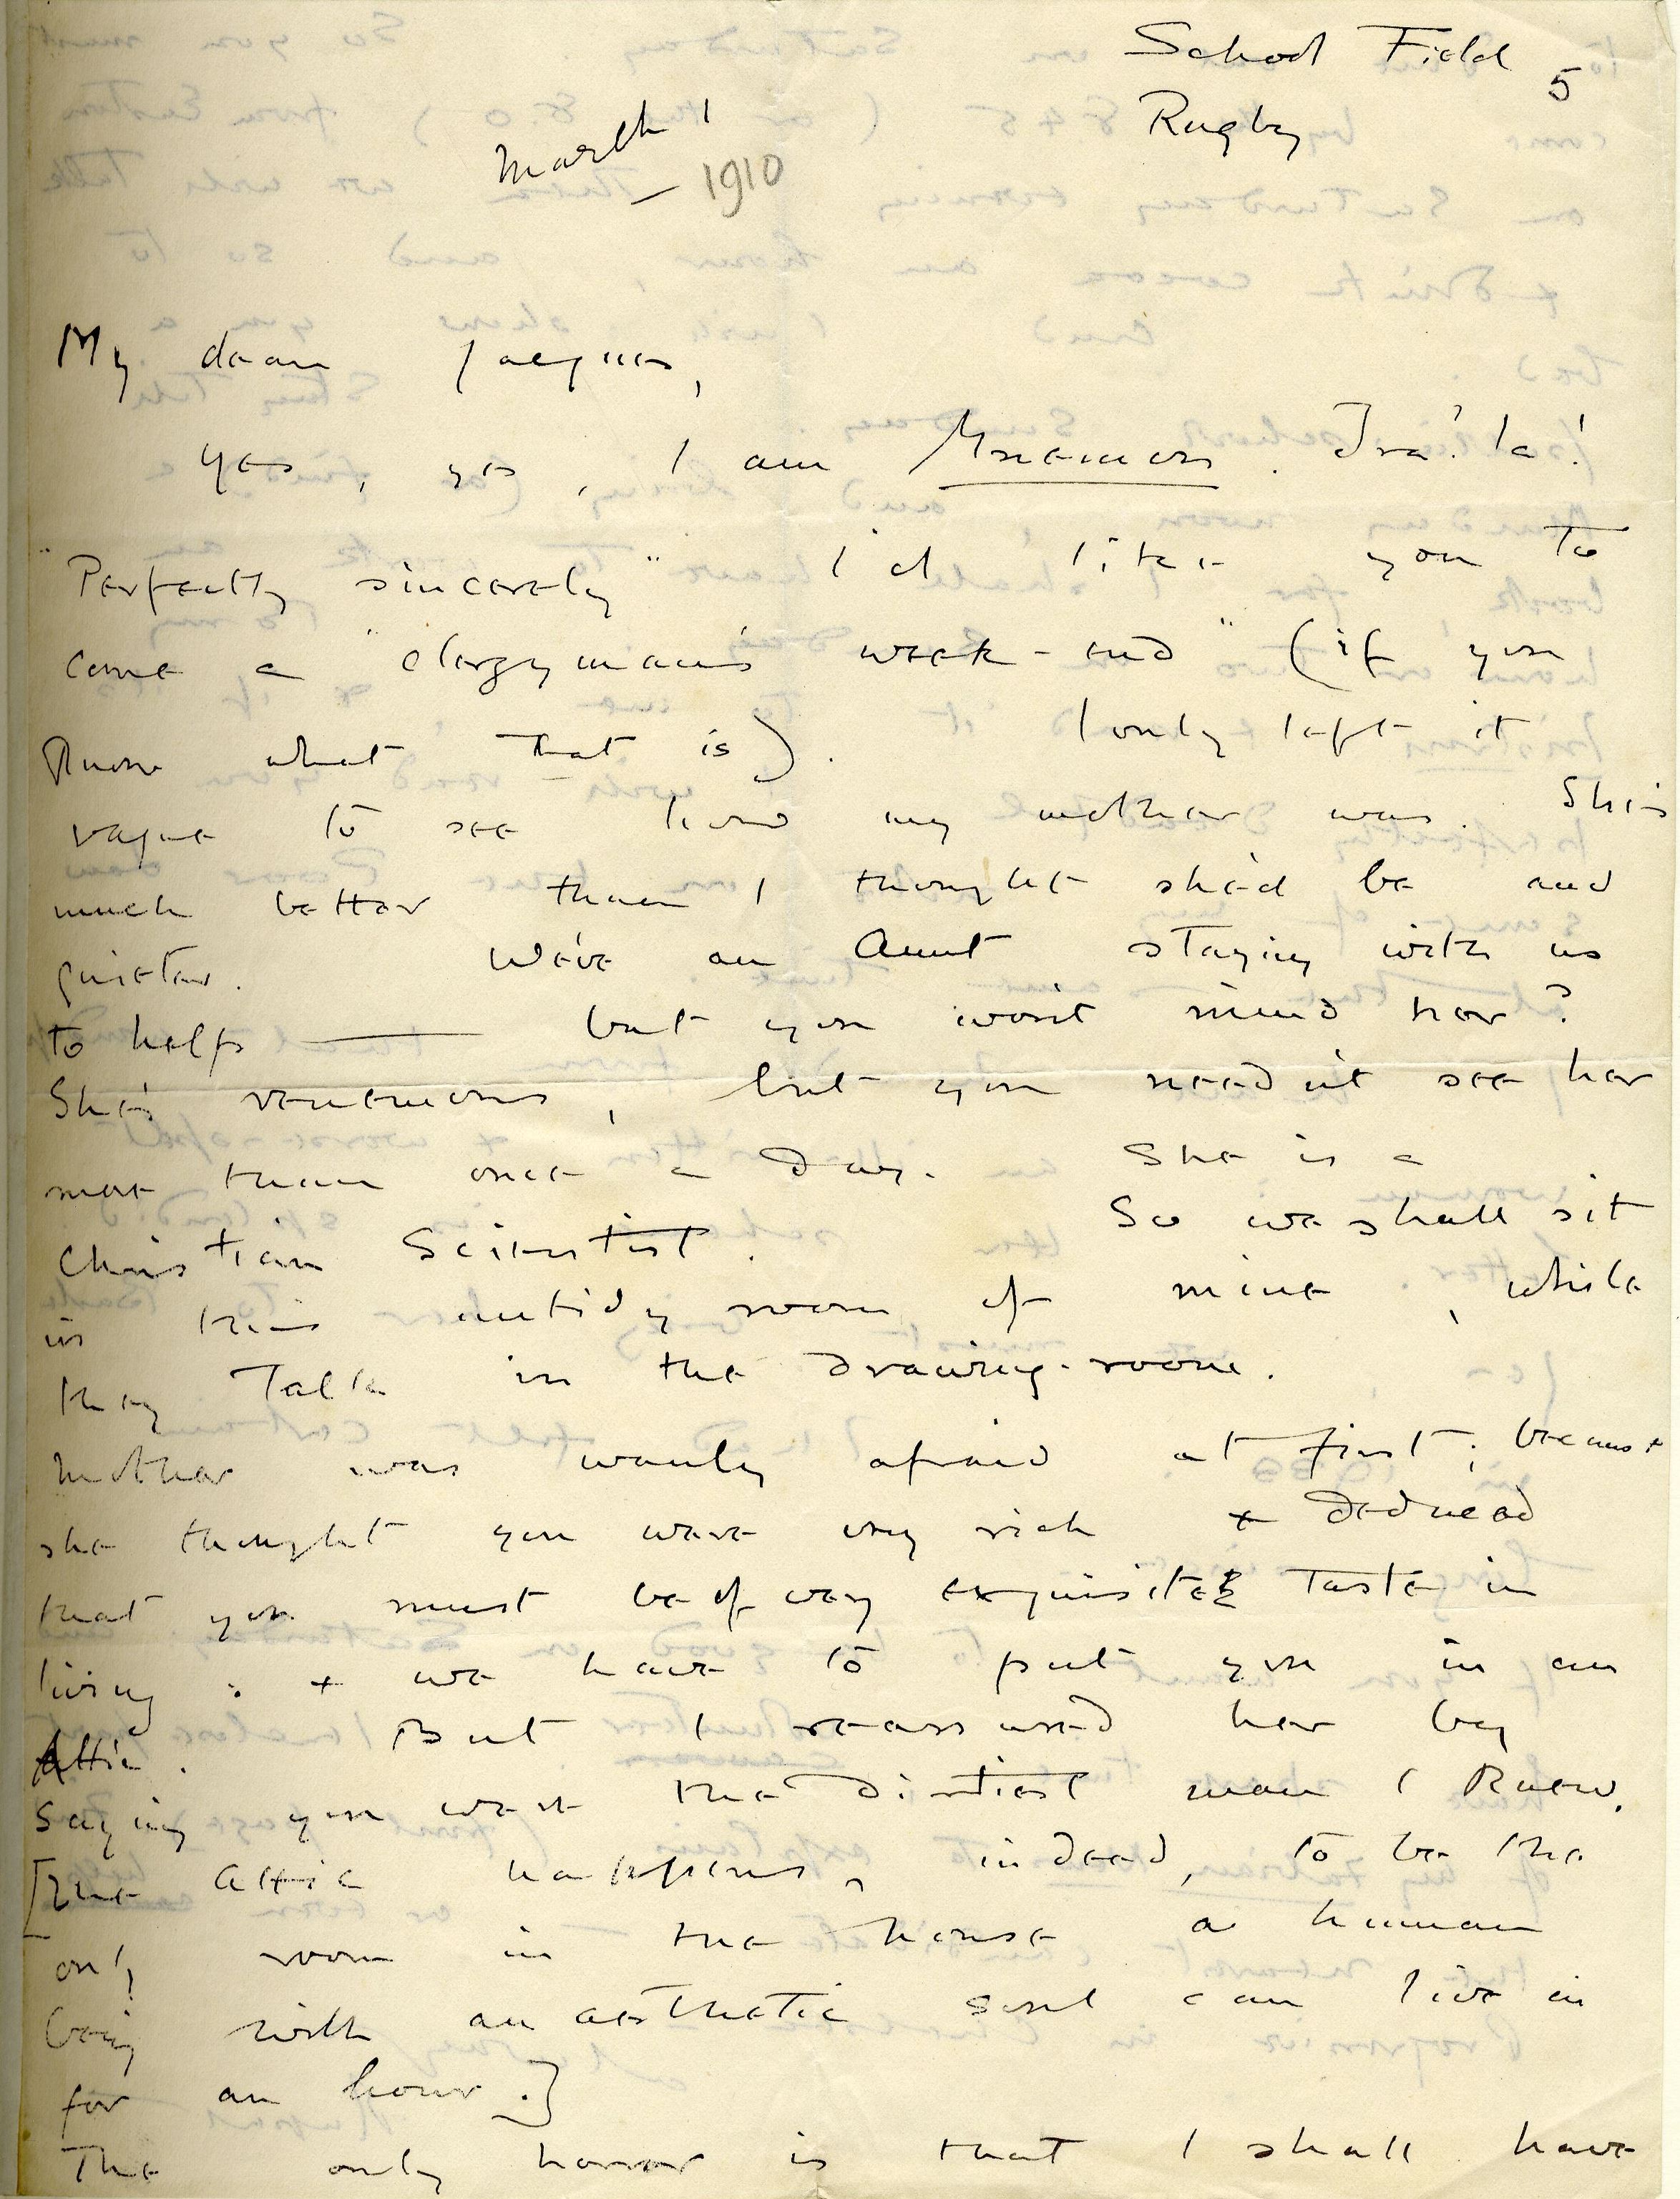 School Field 5
Rugby
March 1
1910
My dear Jacques,
Yes, yes, I am Mnemon. Tra! la!
"Perfectly sincerely" I'd like you to
come a "clergyman's week-end" (if you
know what that is). I only left it
vague to see how my mother was. She's
much better than I thought she'd be and
quieter. We've an Aunt staying with us
to help — but you won't mind her?
She's venemous, but you needn't see her
more than once a day. She is a
Christian Scientist. So we shall sit
in this untidy room of mine, while
they talk in the drawing-room.
Mother was wanly afraid at first; because
she thought you were very rich & deduced
that you must be of very exquisite taste in
living: & we have to put you in an
Attic. But I reassured her by
saying you were the dirtiest man I knew.
[The attic happens, indeed, to be the
only room in the house a human
being with an aesthetic soul can live in
for an hour.]
The only horror is that I shall have